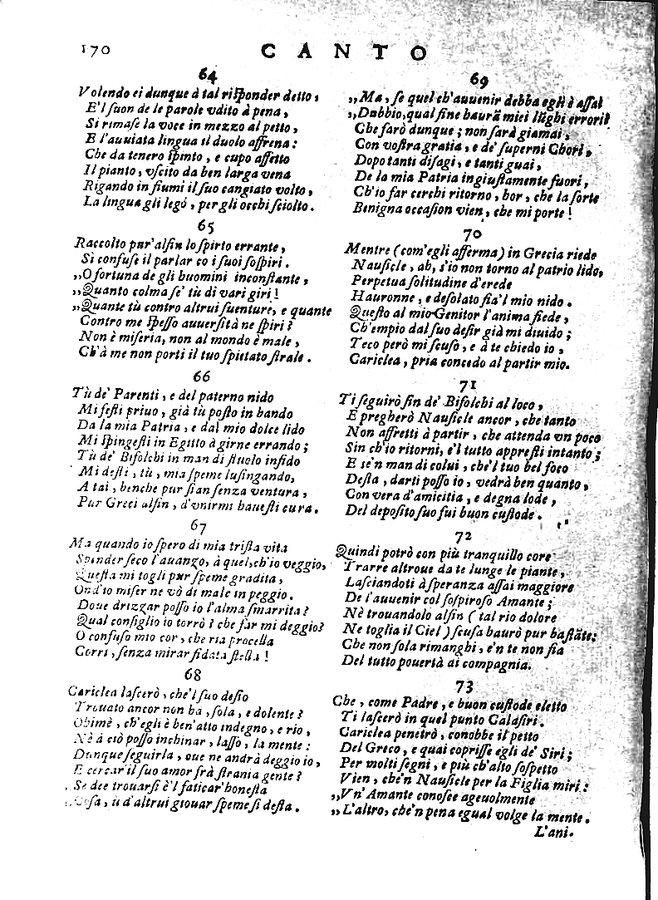 170
CANTO
64
Volendo ei dunque à tal risponder detto,
E'l suon de le parole vdito à pena,
Si rimase la voce in mezzo al petto,
E l'auuiata lingua il duolo affrena:
Che da tenero spinto, e cupo affetto
Il pianto, vscito da ben larga vena
Rigando in fiumi il suo cangiato volto,
La lingua gli legó, per gli occhi sciolto.
65
Raccolto pur'alfin lo spirto errante,
Sì confuse il parlar co i suoi sospiri.
„O fortuna de gli huomini inconstante,
„Quanto colma se' tù di vari giri!
„Quante tù contro altrui suenture, e quante
Contro me spesso auuersità ne spiri?
Non è miseria, non al mondo è male,
Ch'à me non porti il tuo spietato strale.
66
Tù de' Parenti, e del paterno nido
Mi festi priuo, già tù posto in bando
Da la mia Patria, e dal mio dolce lido
Mi spingesti in Egitto à girne errando;
Tù de' Bifolchi in man di stuolo infido
Mi desti, tù, mia speme lusingando,
A tai, benche pur sian senza ventura,
Pur Greci alfin, d'vnirmi hauesti cura.
67
Ma quando io spero di mia trista vita
Spender seco l'auanzo, à quel, ch'io veggio,
Questa mi togli pur speme gradita,
Ond'io miser ne vò di male in peggio.
Doue drizzar posso io l'alma smarrita?
Qual consiglio io torrò? che far mi deggio?
O confuso mio cor, che ria procella
Corri, senza mirar fidata stella!
68
Cariclea lascerò, che'l suo desio
Trouato ancor non ha, sola, e dolente?
Ohimè, ch'egli è ben'atto indegno, e rio,
Nè à ciò posso inchinar, lasso, la mente:
Dunque seguirla, oue ne andrà deggio io,
E cercar il suo amor frà strania gente?
Se dee trouarsi è'l faticar'honesta
Cosa, ù d'altrui giouar speme si desta.
69
„Ma, se quel ch'auuenir debba egli è assai
„Dubbio, qual fine haurà miei lũghi errori?
Che farò dunque; non sarà giamai,
Con vostra gratia, e de' superni Chori,
Dopo tanti disagi, e tanti guai,
De la mia Patria ingiustamente fuori,
Ch'io far cerchi ritorno, hor, che la sorte
Benigna occasion vien, che mi porte!
70
Mentre (com'egli afferma) in Grecia riede
Nausicle, ah, s'io non torno al patrio lido,
Perpetua solitudine d'erede
Hauronne, e desolato fia'l mio nido.
Questo al mio Genitor l'anima fiede,
Ch'empio dal suo desir già mi diuido;
Teco però mi scuso, e à te chiedo io,
Cariclea, pria concedo al partir mio.
71
Ti seguirò fin de' Bifolchi al loco,
E pregherò Nausicle ancor, che tanto
Non affretti à partir, che attenda vn poco
Sin ch'io ritorni, e'l tutto appresti intanto;
E se'n man di colui, che'l tuo bel foco
Desta, darti posso io, vedrà ben quanto,
Con vera d'amicitia, e degna lode,
Del deposito suo fui buon custode.
72
Quindi potrò con più tranquillo core
Trarre altroue da te lunge le piante,
Lasciandoti à speranza assai maggiore
De l'auuenir col sospiroso Amante;
Nè trouandolo alfin (tal rio dolore
Ne toglia il Ciel) scusa haurò pur bastãte:
Che non sola rimanghi, e'n te non sia
Del tutto pouertà ai compagnia.
73
Che, come Padre, e buon custode eletto
Ti lascerò in quel punto Calasiri.
Cariclea penetrò, conobbe il petto
Del Greco, e quai coprisse egli de' Siri;
Per molti segni, e più ch'alto sospetto
Vien, che'n Nausicle per la Figlia miri:
„Vn'Amante conosce ageuolmente
„L'altro, che'n pena egual volge la mente.
L'ani-